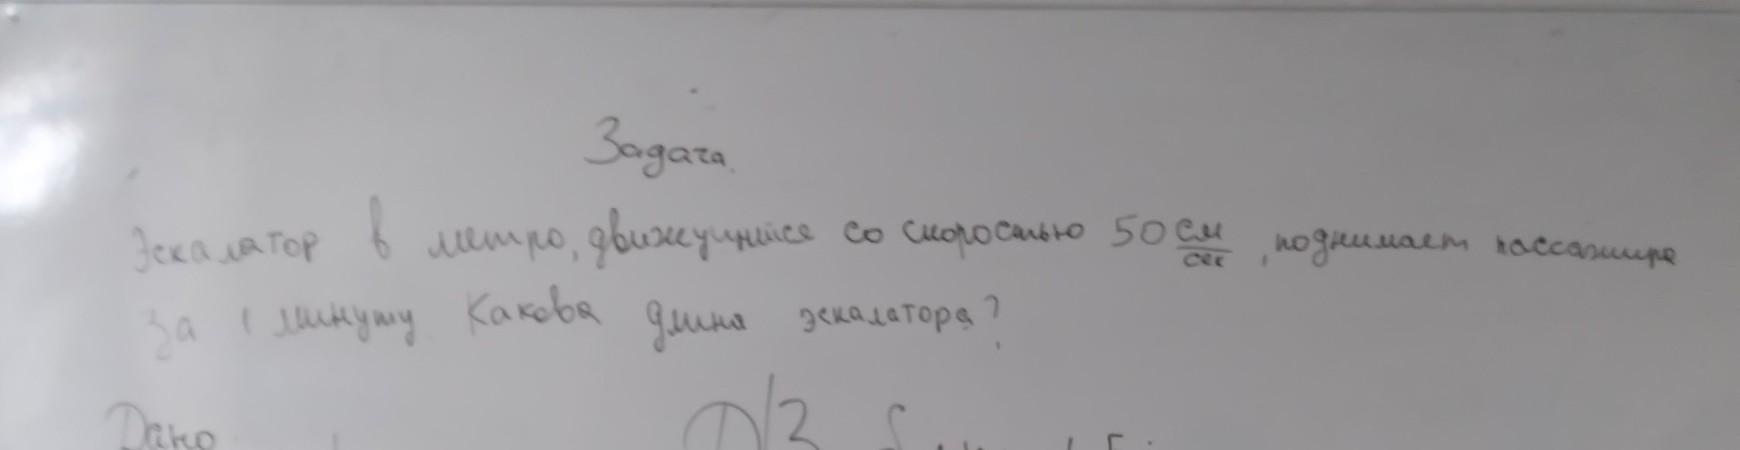 Задача.
Эскалатор в метро, движущийся со скоростью 50 см/сек, поднимает пассажира
за 1 минуту. Какова длина эскалатора?
Дано Д/З